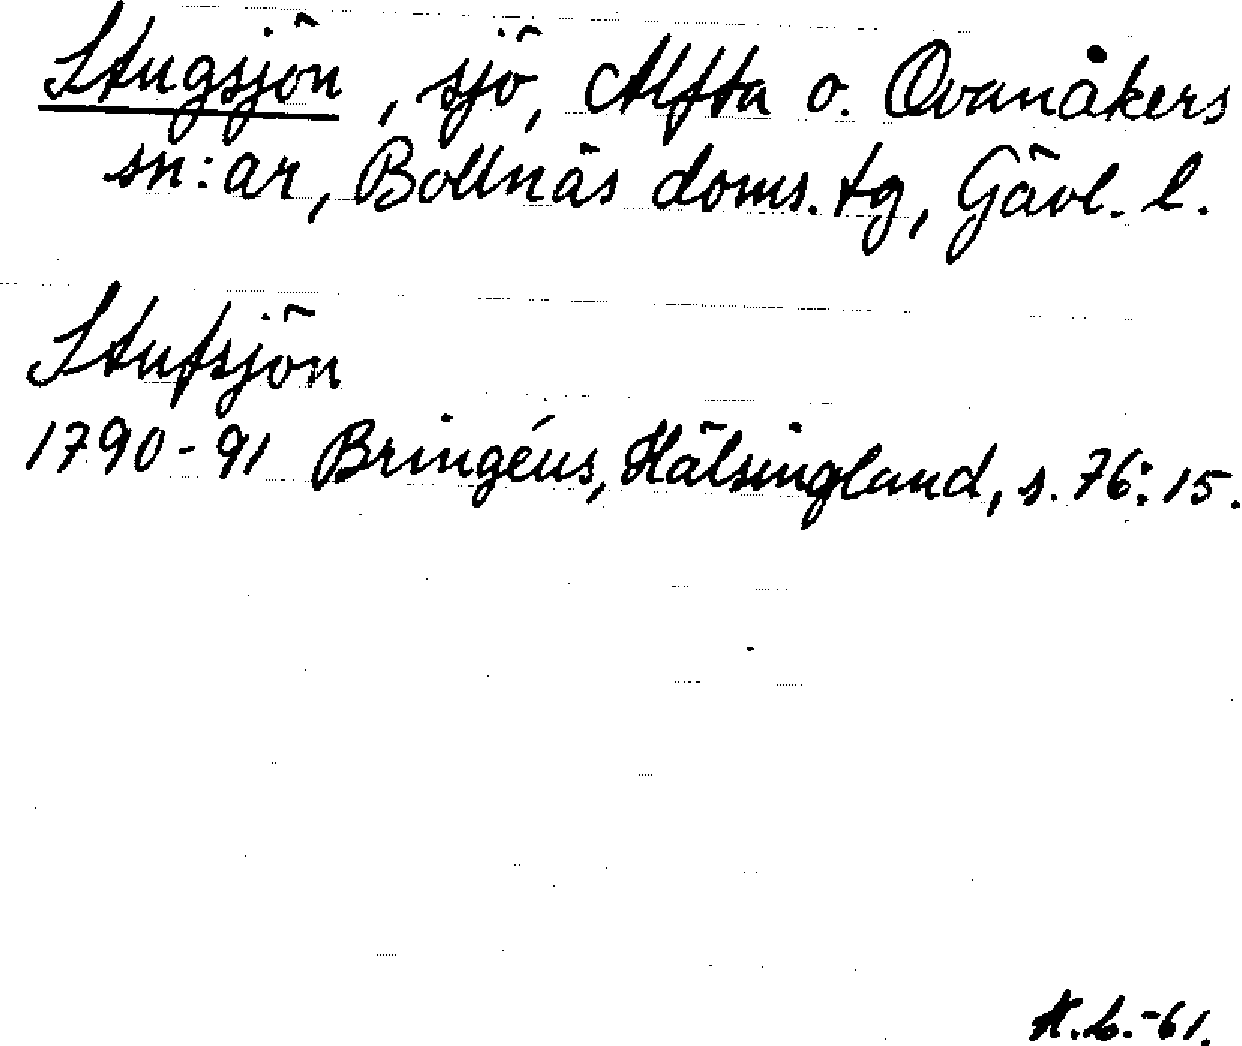 Stugsjön, sjö, Alfta o. Ovanåkers
sn:ar, Bollnäs doms. tg, Gävl. l.
Stufsjön
1790-91 Bringéus, Hälsingland, s. 76:15.
K.L.-61.